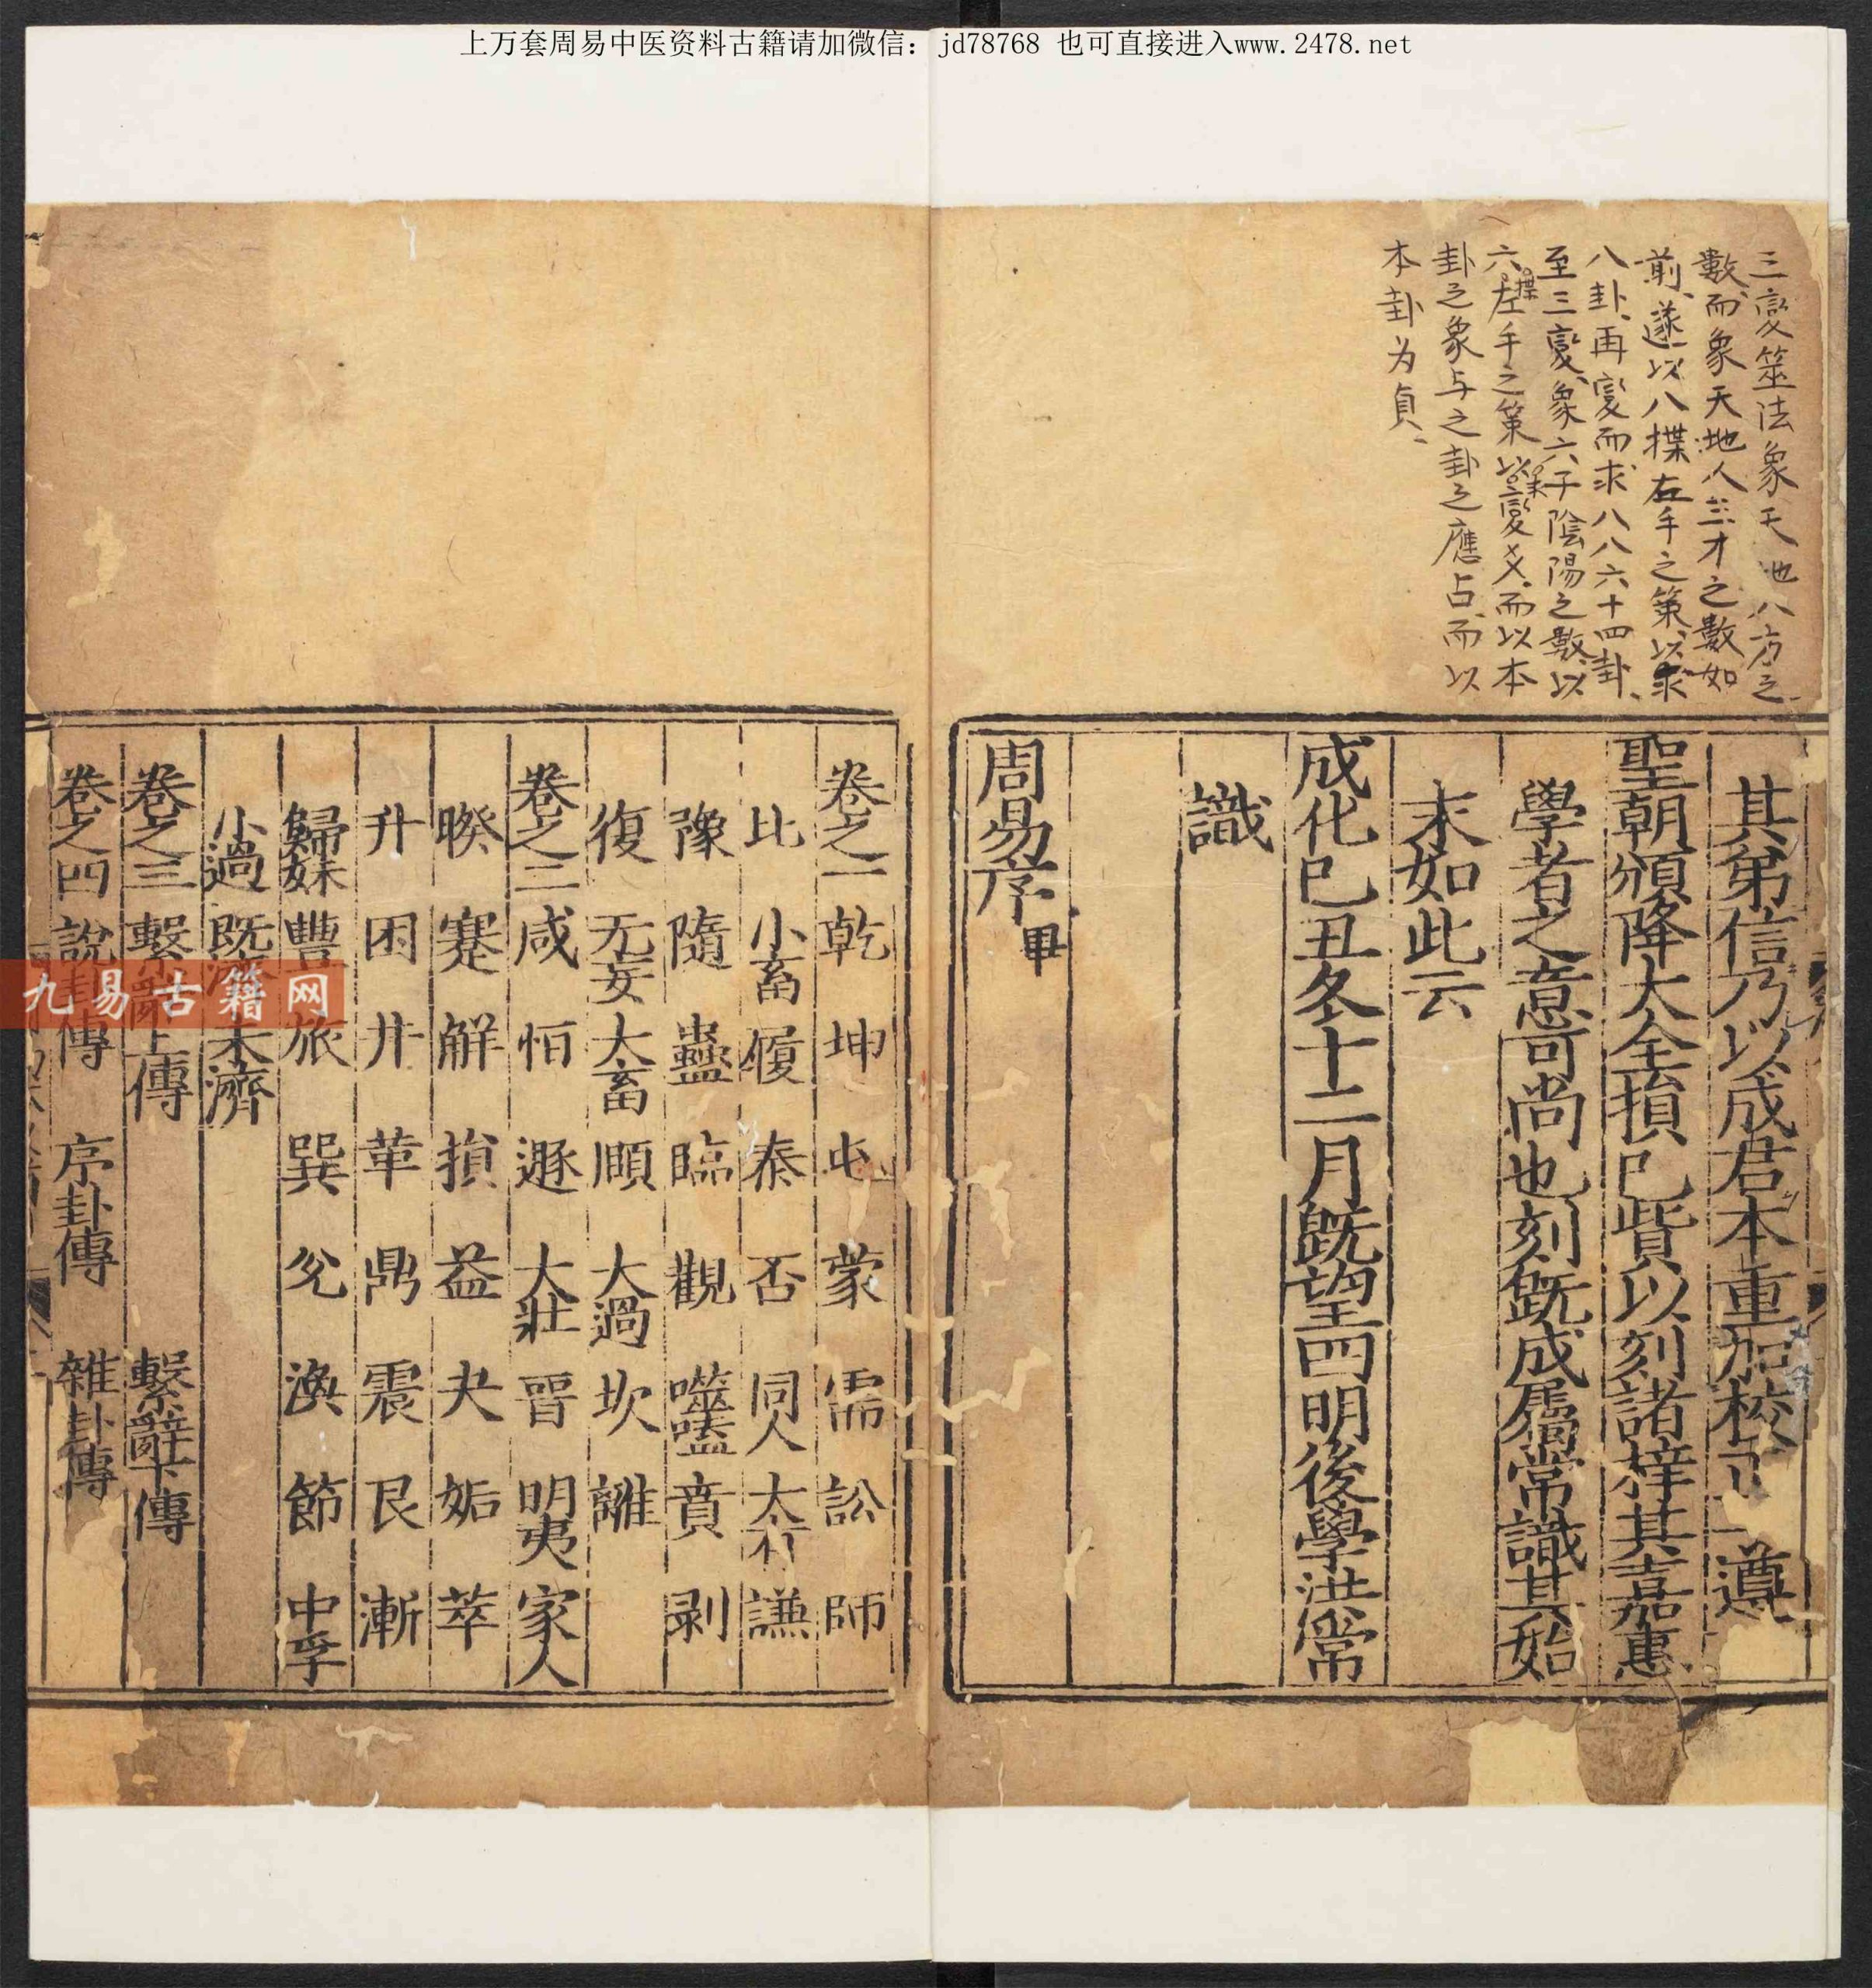 上万套周易中医资料古籍请加微信：jd78768 也可直接进入www.2478.net
三变筮法象天地八方之
數、而象天地人三才之數如
前、遂以八揲右手之策、以求
八卦、再変而求八八六十四卦、
至三変、象六子陰陽之數、以
六揲左手之策以求変爻、而以本
卦之象与之卦之應占、而以
本卦为貞、
其弟信乃以成君本重加校 遵
聖朝頒降大全損已貲以刻諸梓其嘉惠
學者之意可尚也刻既成屬常識其始
末如此云
成化已丑冬十二月既望四明後學洪常
識
周易序畢
卷之一 乾 坤 屯 蒙 需 訟 師
比 小畜 履 泰 否 同人 大有 謙
豫 隨 蠱 臨 觀 噬嗑 賁 剥
復 无妄 大畜 頤 大過 坎 離
卷之二 咸 恒 遯 大壯 晉 明夷 家人
睽 蹇 解 損 益 夬 姤 萃
升 困 井 革 鼎 震 艮 漸
歸妹 豐 旅 巽 兊 渙 節 中孚
小過 既濟 未濟
卷之三 繫辭上傳 繫辭下傳
卷之四 說卦傳 序卦傳 雜卦傳
九易古籍网